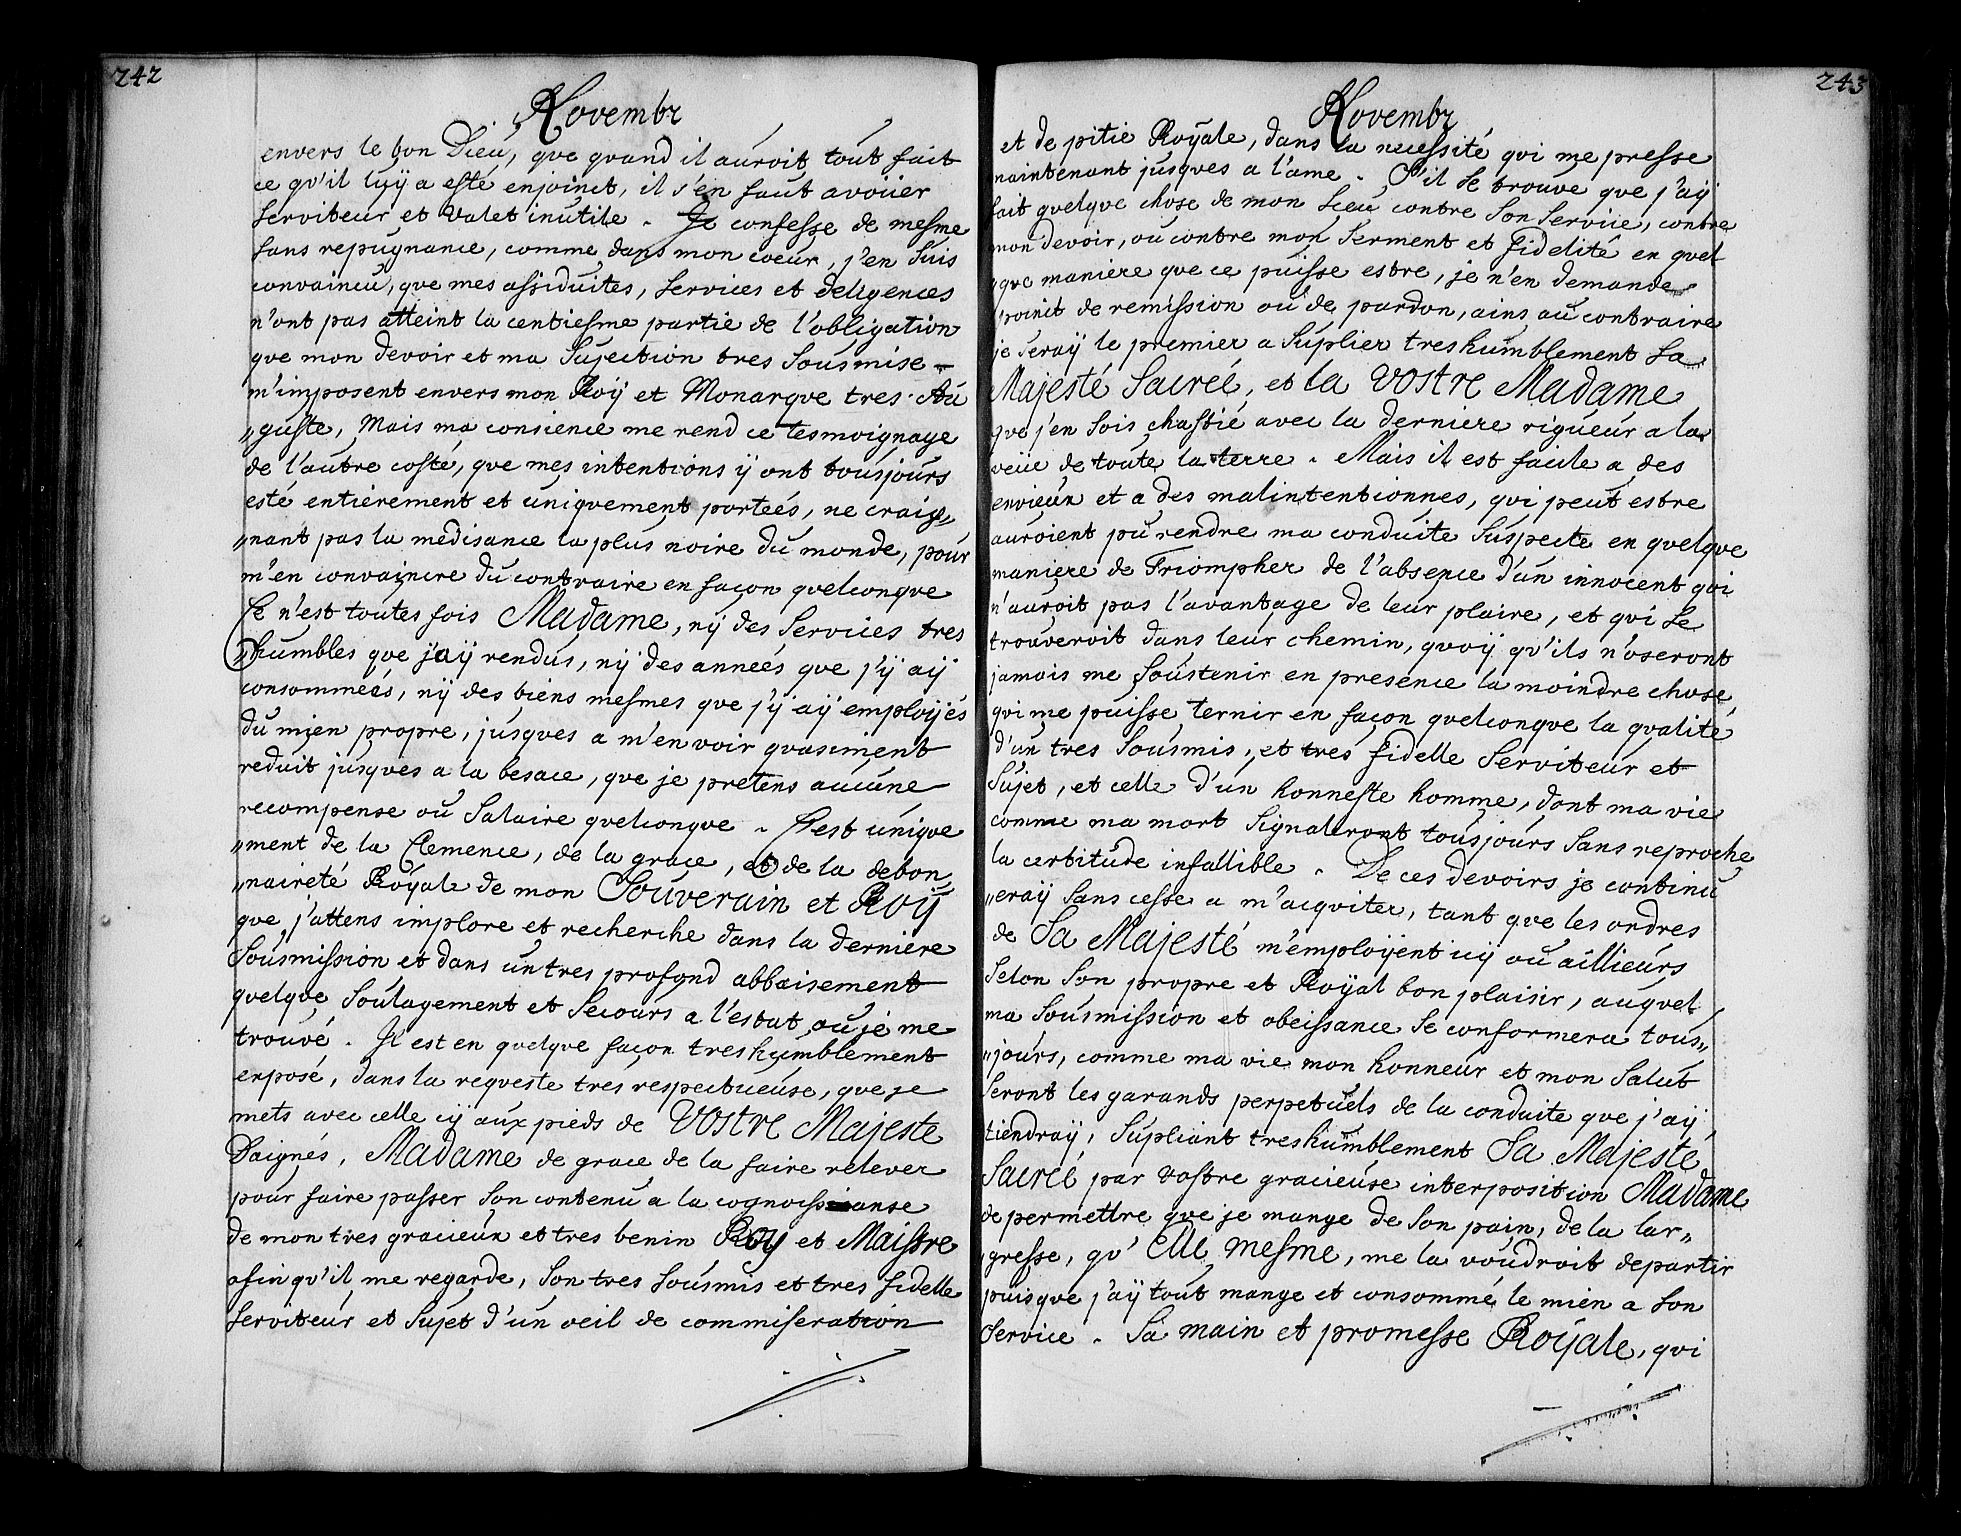 242
Novembr
envers le bon Dieu, que quand il auroit tout fait
ce qu'il luÿ a esté enjoinct, il s'en faut avoüer
serviteur et valet inutile. Je confesse de mesme
sans repugnance, comme dans mon coeur, j'en suis
convaincu, que mes assiduites, services et deligences
n'ont pas atteint la centiesme partie de l'obligation
que mon devoir et ma sujection tres sousmise
m'imposent envers mon Roÿ et Monarque tres Au
„guste, Mais ma concience me rend ce tesmoignage
de l'autre costé, que mes intentions ÿ ont tousjours
esté entierement et uniquement porteés, ne craig„
„nant pas la médisance la plus noire du monde, pour
m'en convaincre du contraire en façon quelconque
Ce n'est toutes fois Madame, nÿ des Services tres
„humbles que j'aÿ rendus, nÿ des anneés que j'ÿ aÿ
consomméés, nÿ des biens mesmes que j'ÿ aÿ emploÿés
du mien propre, jusques a m'en voir quasiment
reduit jusques a la besace, que je pretens aucune
recompense ou Salaire quelconque. C'est unique
„ment de la Clemence, de la grace, et de la debon„
„naireté Roÿale de mon Souverain et Roÿ
que j'attens implore et recherche dans la derniere
Sousmission et dans un tres profond abbaisement
quelque Soulagement et Secours a l'estat ou je me
trouvé. Il est en quelque façon treshumblement
exposé, dans la requeste tres respectueuse, que je
mets avec celle cÿ aux pieds de Vostre Majeste
Daignés, Madame de grace de la faire relever
pour faire passer Son contenu a la cognoissanse
de mon tres gracieux et tres benin Roy et Maistre
afin qu'il me regarde, Son tres Sousmis et tres fidelle
Serviteur et Sujet d'un oeil de commiseration
243
Novembr
et de pitié Roÿale, dans la necessité qui me presse
maintenant jusques a l'ame. S'il se trouve que j'aÿ
fait quelque chose de mon Sceu contre Son Service, contre
mon devoir, ou contre mon Serment et fidelité en quel
„que maniere que ce puisse estre, je n'en demande
point de remission ou de pardon, ains au contraire
je seraÿ le premier a Suplier treshumblement Sa
Majesté Sacreé, et la Vostre Madame
que j'en Sois chastié avec la derniere rigueur a la
veüe de toute la terre. Mais il est facile a des
envieux et a des malintentionnes, qui peut estre
auroient pu rendre ma conduite Suspecte en quelque
maniere de Triompher de l'absence d'un innocent qui
n'auroit pas l'avantage de leur plaire, et qui Se
trouveroit dans leur chemin, quoÿ qu'ils n'oseront
jamais me Soustenir en presence la moindre chose
qui me puisse ternir en façon quelconque la qualité
d'un tres Sousmis, et tres fidelle Serviteur et
Sujet, et celle d'un honneste homme, dont ma vie
comme ma mort Signaleront tousjours Sans reproche
la certitude infallible. De ces devoirs je continu
„eraÿ Sans cesse a m'acquiter, tant que les ordres
de Sa Majesté m'emploÿent icÿ ou aillieurs
Selon Son propre et Roÿal bon plaisir, auquel
ma Sousmission et obeissance Se conformera tous„
„jours, comme ma vie mon honneur et mon Salut
Seront les garands perpetuels de la conduite que j'aÿ
tiendraÿ, Supliant treshumblement Sa Majesté
Sacreé par vostre gracieuse interposition Madame
de permettre que je mange de Son pain, de la lar„
„gresse, qu'Elle mesme, me la voudroit departir
puisque j'aÿ tout mange et consommé le mien a Son
Service. Sa main et promesse Roÿale, qui